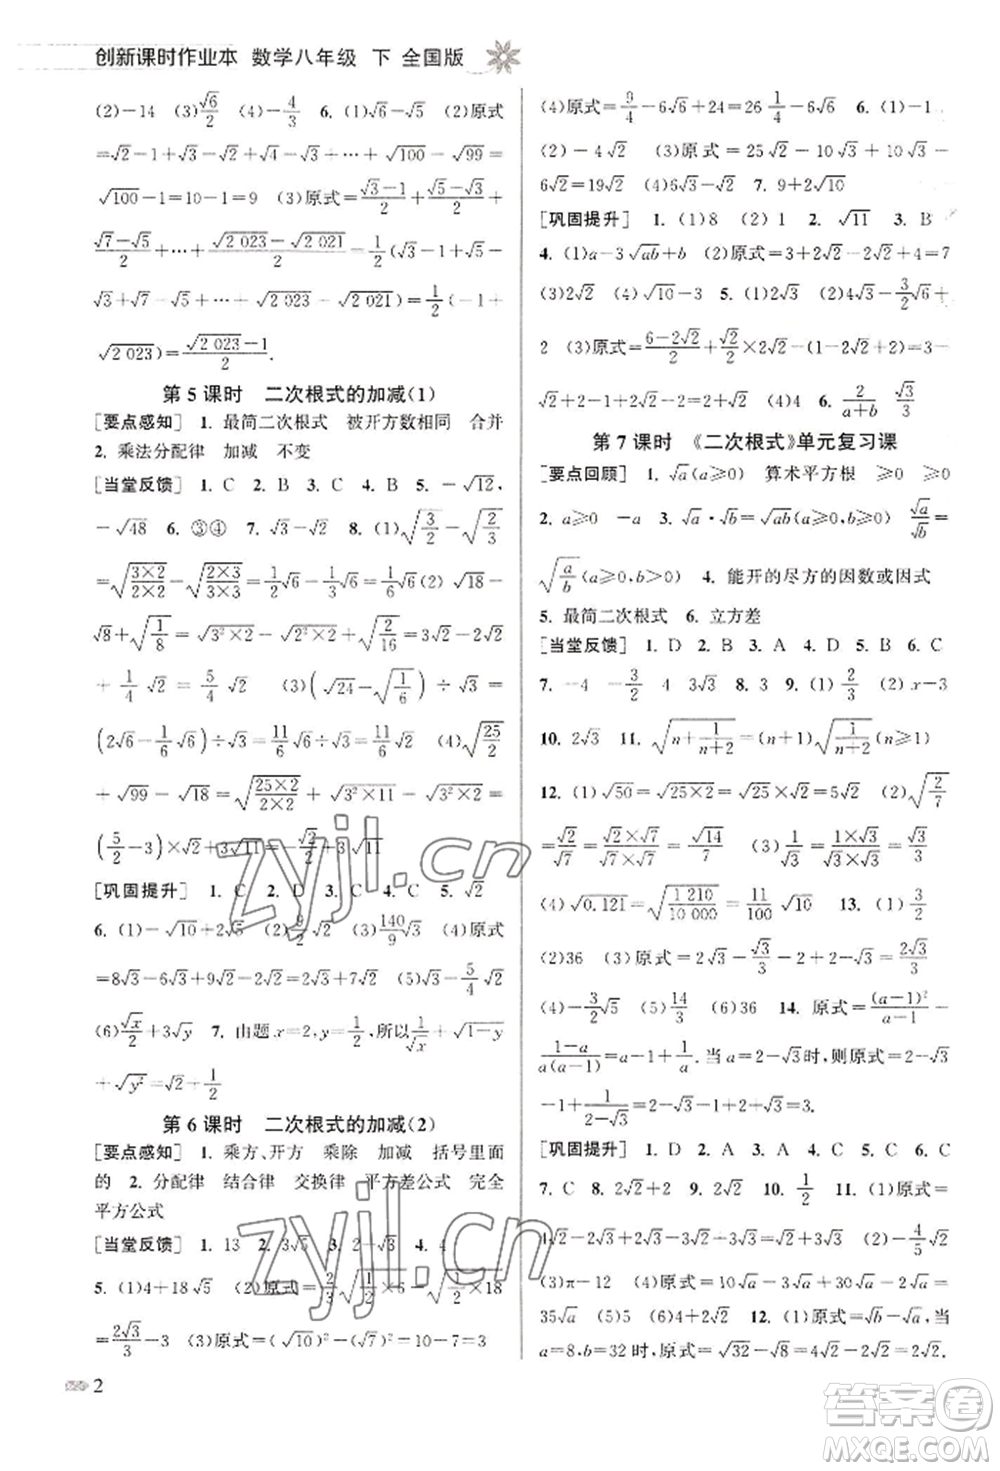 创新课时作业本 数学八年级 下 全国版
(2)-14 (3)√6/2 (4)-4/3 6. (1)√6-√5 (2)原式
=√2-1+√3-√2+√4-√3+…+√100-√99=
√100-1=10-1=9 (3)原式=(√3-1)/2+(√5-√3)/2+
(√7-√5)/2+…+(√2 023-√2 021)/2=1/2(-1+√3-√3+
√5-√5+√7+…+√2 023-√2 021)=1/2(-1+
√2 023)=(√2 023-1)/2.
第 5 课时 二次根式的加减(1)
[要点感知] 1. 最简二次根式 被开方数相同 合并
2. 乘法分配律 加减 不变
[当堂反馈] 1. C 2. B 3. C 4. A 5. -√12,
-√48 6. ③④ 7. √3 8. (1)√(3/2)-√(2/3)
=√((3×2)/(2×2))-√((2×3)/(3×3))=1/2√6-1/3√6=1/6√6 (2)√18-
√8+√(1/8)=√(3²×2)-√(2²×2)+√(2/16)=3√2-2√2
+1/4√2=5/4√2 (3)(√24-√(1/6))÷√3=
(2√6-1/6√6)÷√3=11/6√6÷√3=11/6√2 (4)√(25/2)
+√99-√18=√((25×2)/(2×2))+√(3²×11)-√(3²×2)=
(5/2-3)√2+3√11=-1/2√2+3√11
[巩固提升] 1. C 2. D 3. A 4. C 5. √2
6. (1)-√10+2√2 (2)9/2√2 (3)140/9√3 (4)原式
=8√3-2√2+9√2-2√3=7√2+6√3 (5)√3-5/4√2
(6)√x/3+3√x 7. 由题x=2,y=1/2,所以1/√x+√(1-y)
+√y²=√2+1/2
第 6 课时 二次根式的加减(2)
[要点感知] 1. 乘方、开方 乘除 加减 括号里面
的 2. 分配律 结合律 交换律 平方差公式 完全
平方公式
[当堂反馈] 1. 13 2. 3√5 3. 2 4. 4
5. (1)4+18√2 (2)原式=2√(1/2×2/3)-1/2√(2×18)
=2√3/3-3 (3)原式=(√10)²-(√7)²=10-7=3
(4)原式=9/4-6√6+24=26 1/4-6√6 6. (1)-1
(2)-4√2 (3)原式=25√2-10√3+10√3-
6√2=19√2 (4)6√3 7. 9+2√10
[巩固提升] 1. (1)8 (2)1 2. √11 3. B
4. (1)a-3√ab+b (2)原式=3+2√2-2√2+4=7
(3)2√2 (4)√10-3 5. (1)2√3-3/2√6+
2 (3)原式=(6-2√2)/(2√2)+√2/2=3/2√2-1+1/2√2=2
√2-1+√2+1=2√2 (4)4 6. 2/(a+b) √3/3
第 7 课时 《二次根式》单元复习课
[要点回顾] 1. √a(a⩾0) 算术平方根 ⩾0 ⩾0
2. a⩾0 -a 3. √a·√b=√ab(a⩾0,b⩾0) √a/√b=
√(a/b)(a⩾0,b>0) 4. 能开的尽方的因数或因式
5. 最简二次根式 6. 立方差
[当堂反馈] 1. D 2. B 3. A 4. D 5. B 6. C
7. -4 -3/2 4 3√3 8. 3 9. (1)√2/4 (2)x-3
10. 2√3 11. √(n+1/(n+2))=(n+1)√(1/(n+2))(n⩾1)
12. (1)√50=√(25×2)=√25×√2=5√2 (2)√(2/7)
=√2/√7=(√2×√7)/(√7×√7)=√14/7 (3)1/√3=(1×√3)/(√3×√3)=√3/3
(4)√0.121=√(1 210/10 000)=11/100√10 13. (1)3/2
(2)36 (3)原式=2√3-√3/3-2+√3/3=2√3-2
(4)-3/2√5 (5)14/3 (6)36 14. 原式=(a-1)²/(a-1)-
(1-a)/(a(a-1))=a-1+1/a.当a=2-√3时,则原式=2-√3
-1+1/(2-√3)=2-√3-1+2+√3=3.
[巩固提升] 1. D 2. A 3. A 4. C 5. C 6. C
7. C 8. 5 9. 2√2+2 10. 1/2 11. (1)原式=
4√2-3√2+2√2=3√2 (2)原式=2√2-4/5√2
(3)π-12 (4)原式=2√a·√a·√a/√a=2√a (5)
35√a (5)0 (6)4 12. (1)原式=√b-√a,当
a=8,b=32时,原式=√32-√8=4√2-2√2=2√2.
2
zyjl.cn
zyjl.cn
答案圈
MXQE.COM